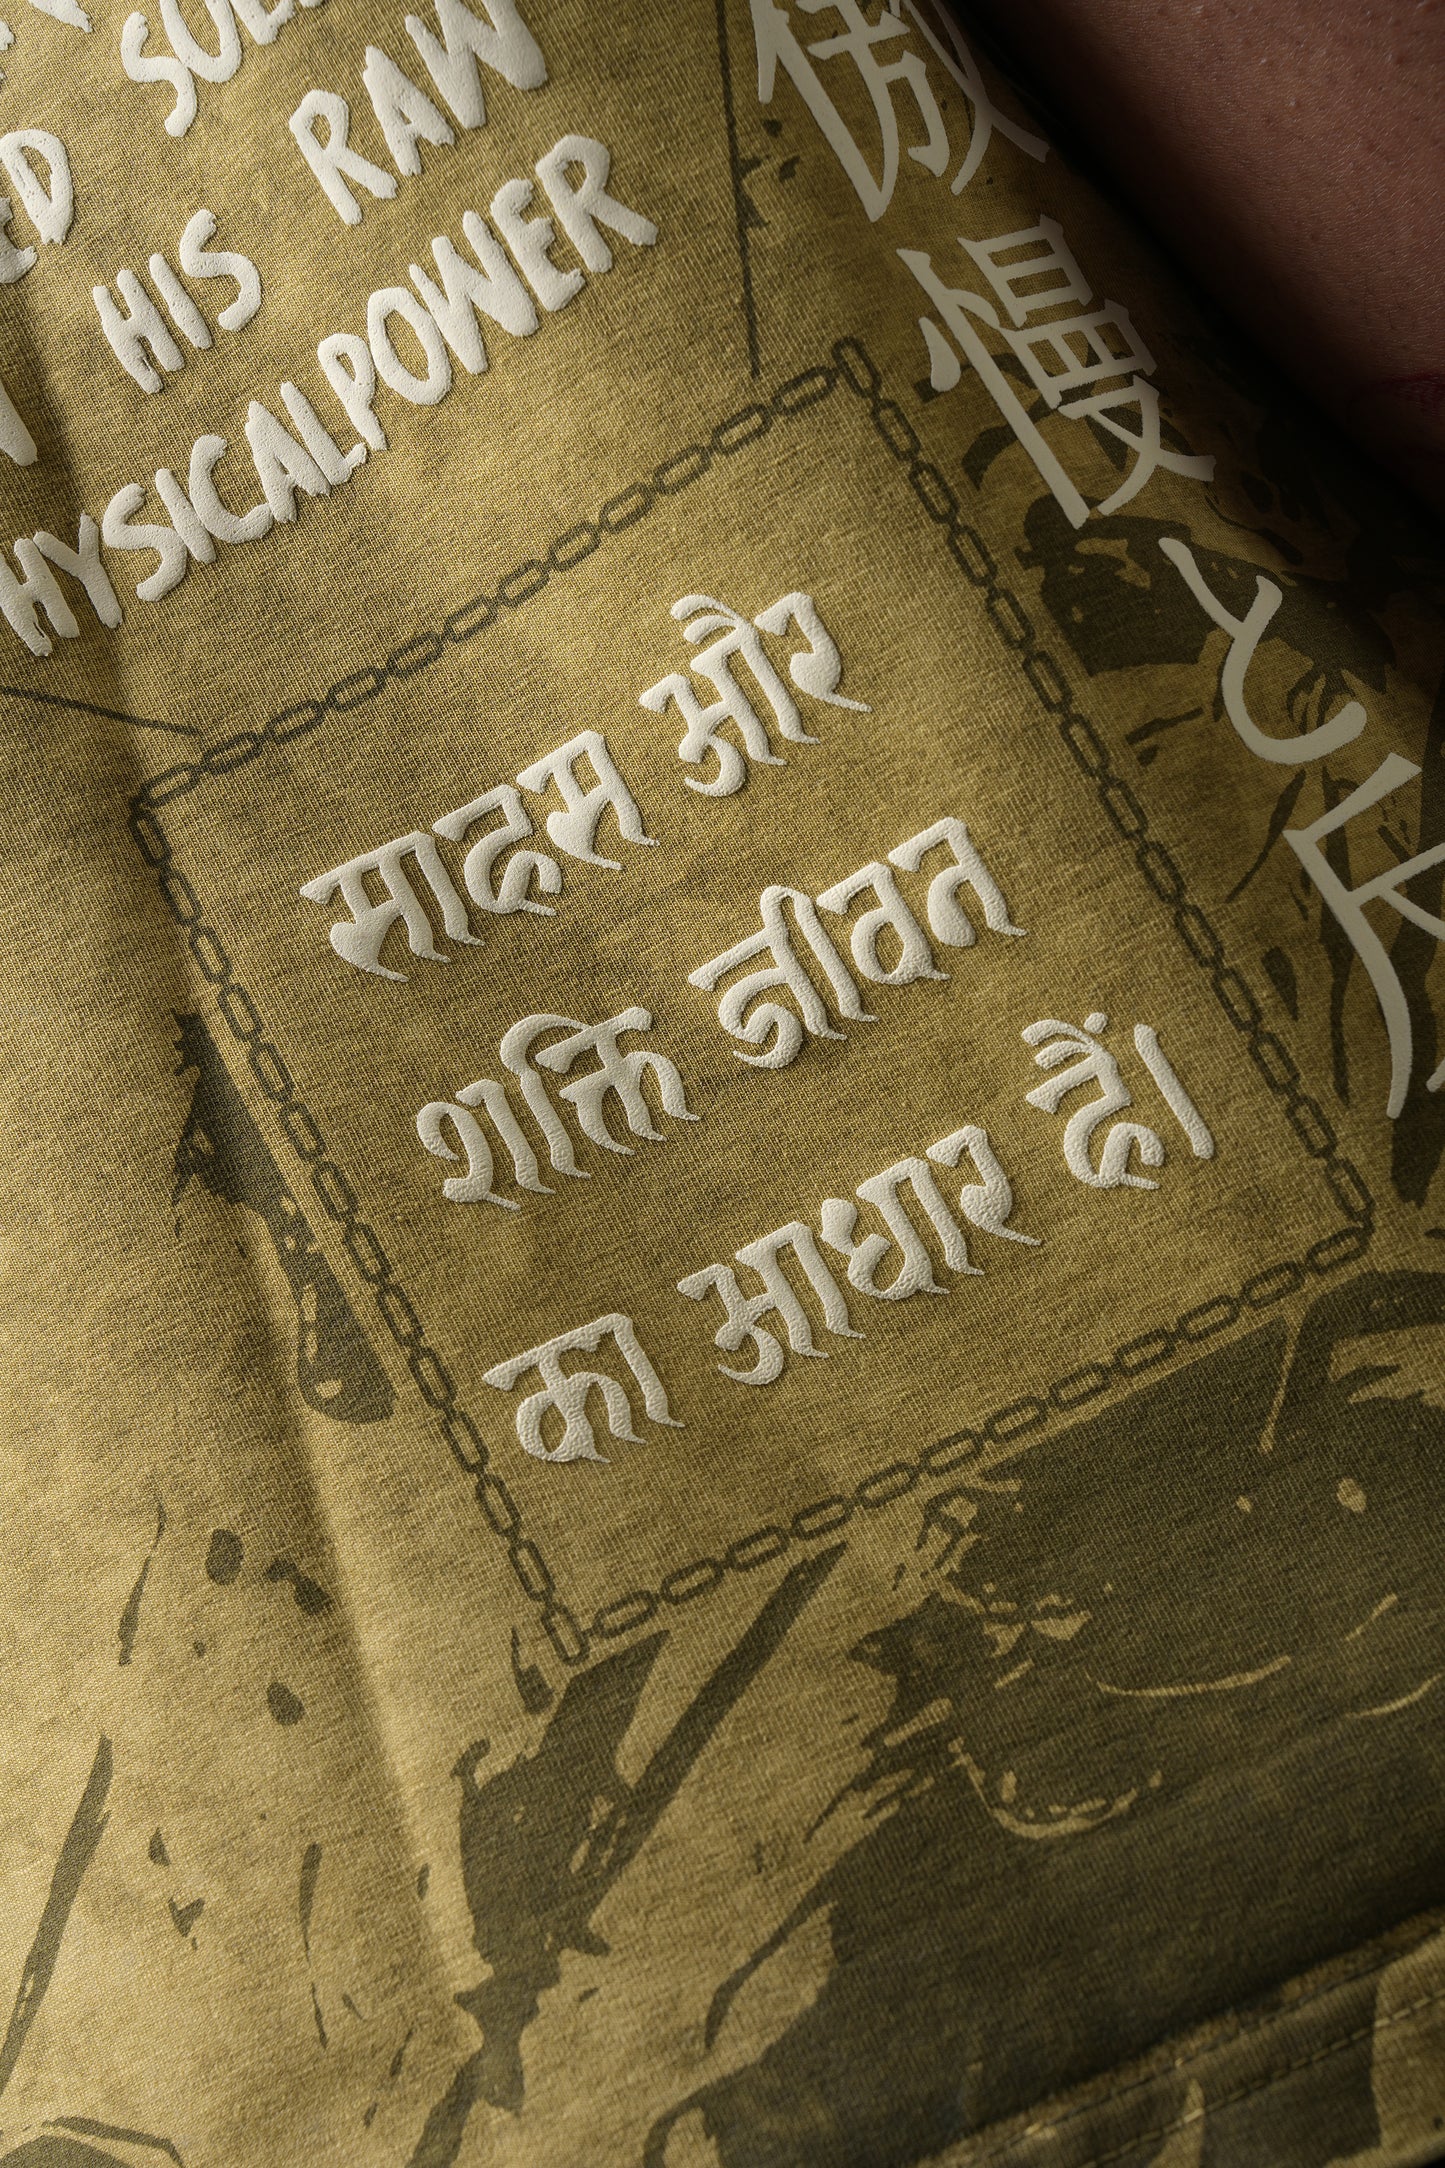 HIS RAW
HYSICALPOWER
साहस और
शक्ति जीवन
का आधार हैं।
傲慢